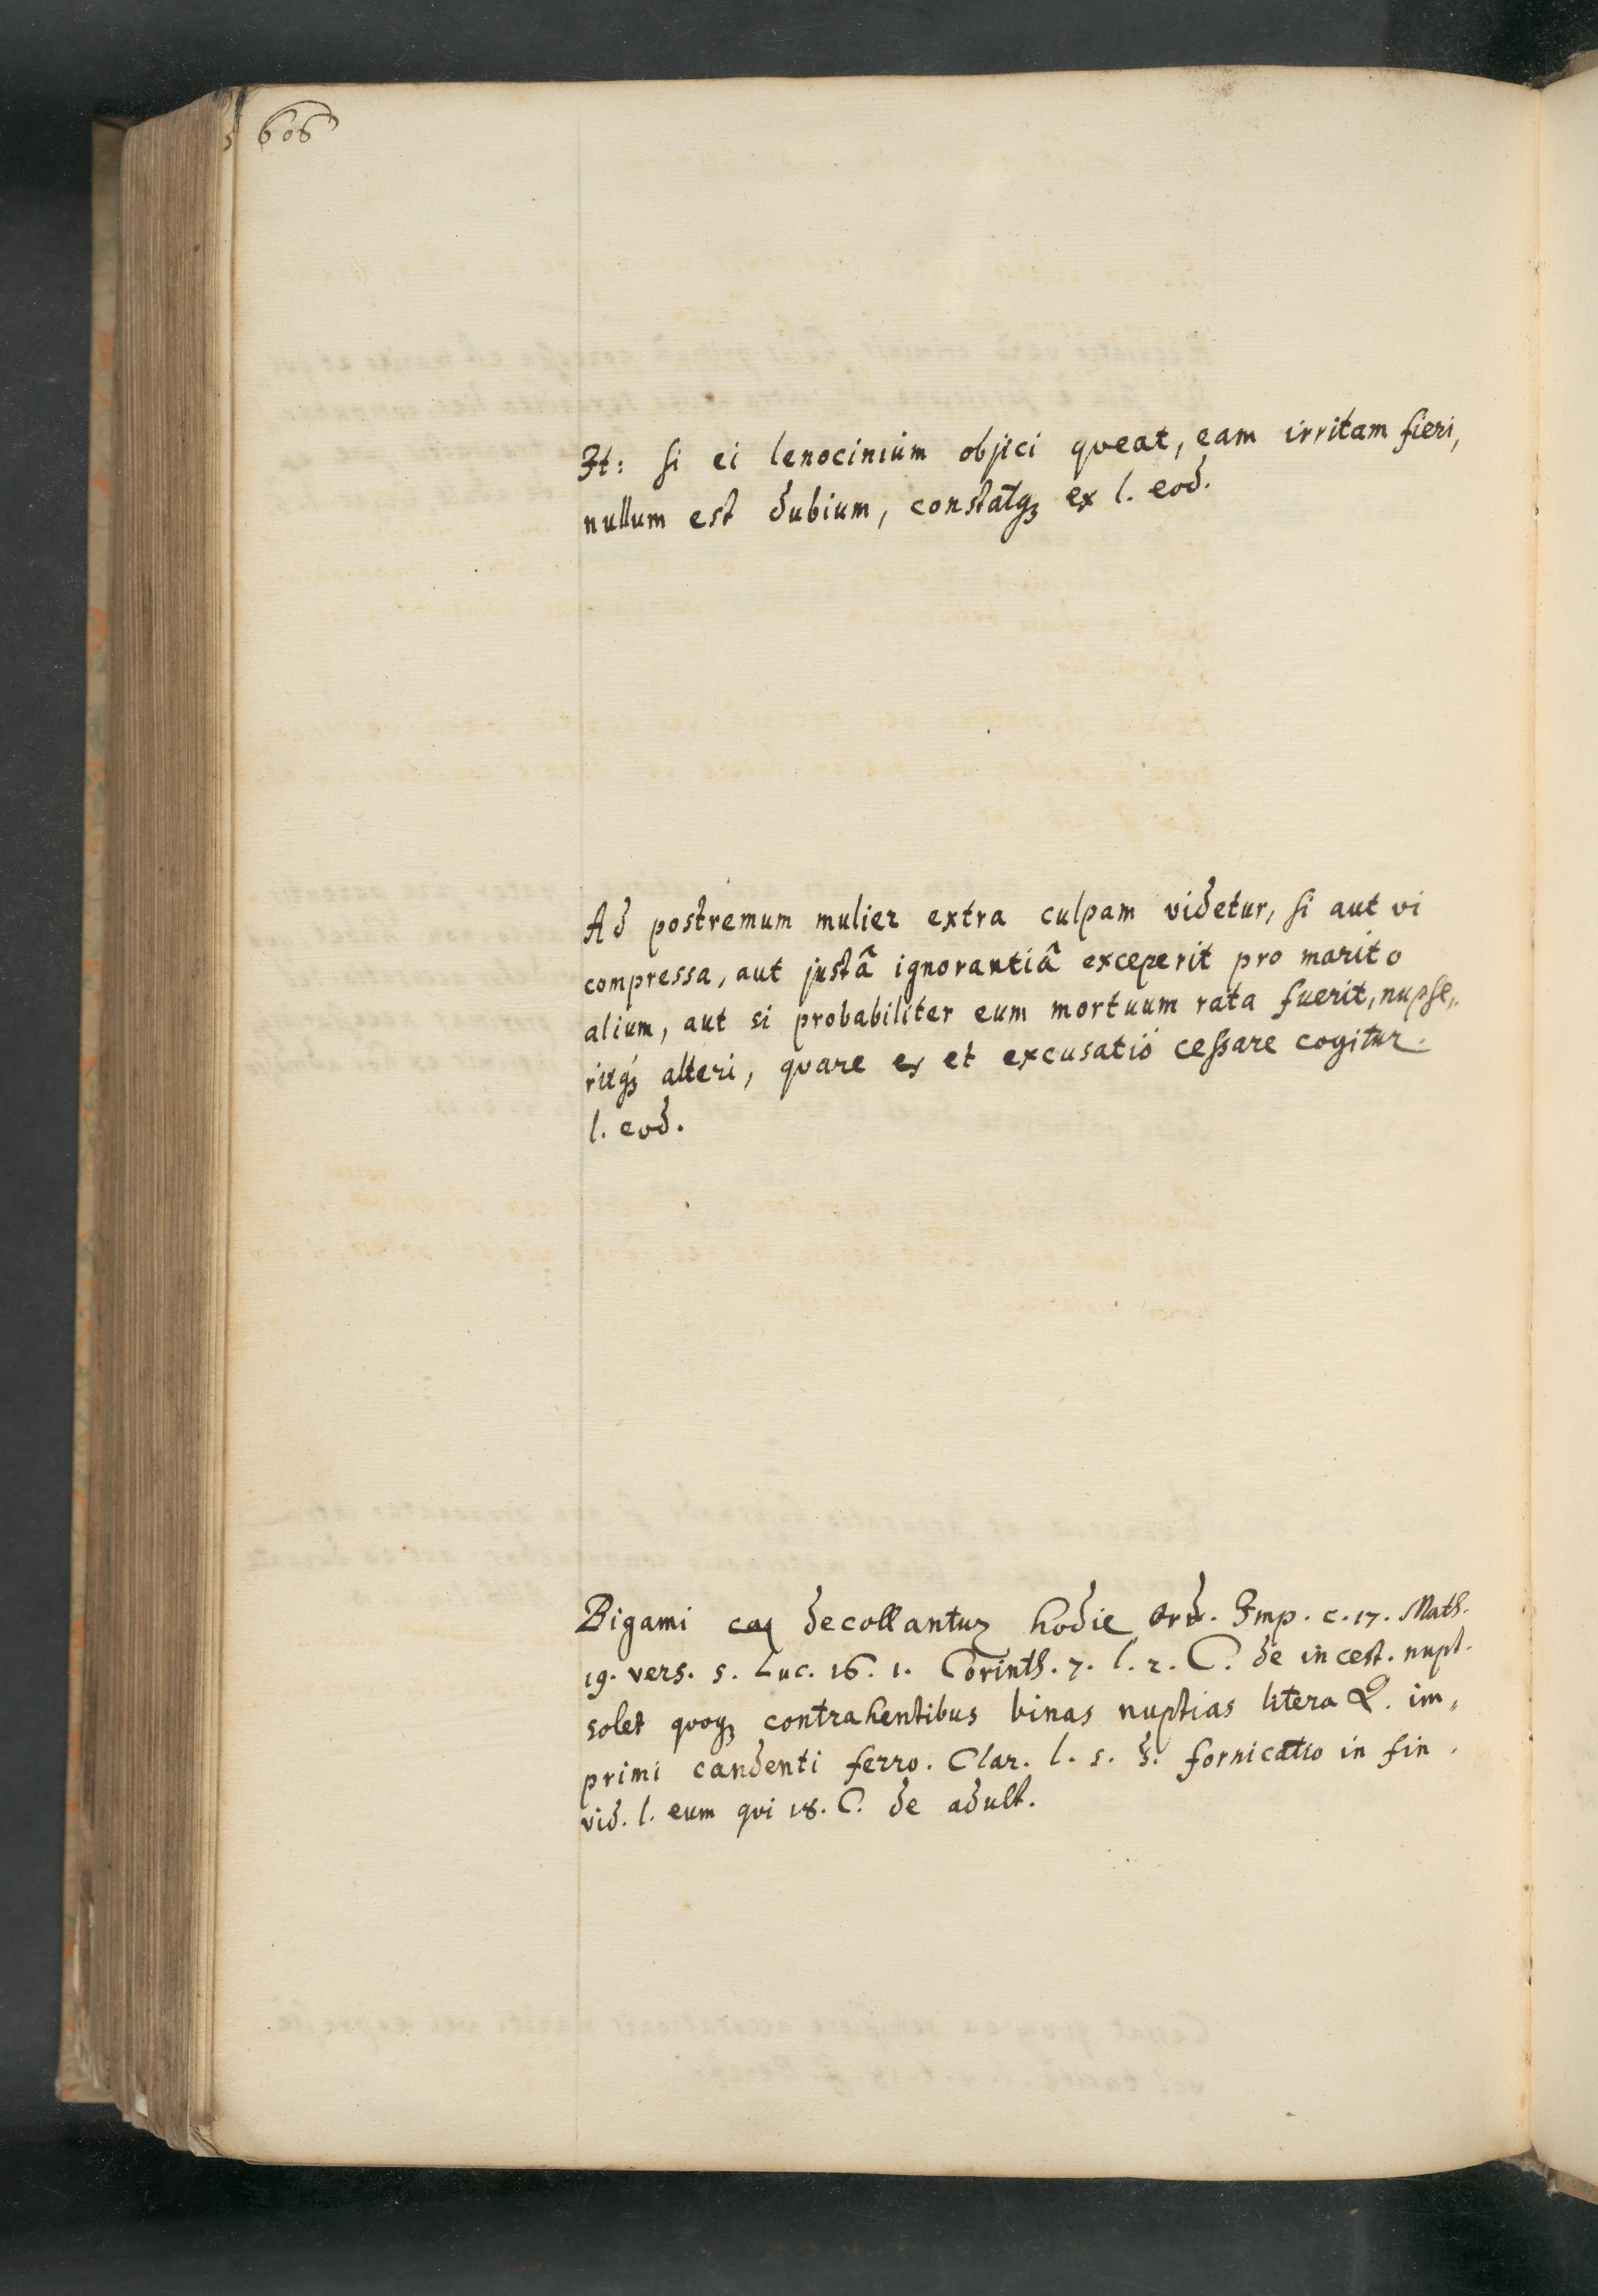 606
It: si ei lenocinium objici qveat, eam irritam fieri,
nullum est dubium, constatq3 ex l. eod.
Ad postremum mulier extra culpam videtur, si aut vi
compressa, aut justâ ignorantiâ exceperit pro marito
alium, aut si probabiliter eum mortuum rata fuerit, nupse„
ritq3 alteri, qvare et excusatio cessare cogitur.
l. eod.
Bigami decollantur hodie Ord. Imp. c. 17. Math.
19. vers. 5. Luc. 16. 1. Corinth. 7. l. 2. C. de incest. nupt.
solet qvoq3 contrahentibus binas nuptias litera Q. im„
primi candenti ferro. Clar. l. 5. §. fornicatio in fin.
vid. l. eum qvi 18. C. de adult.